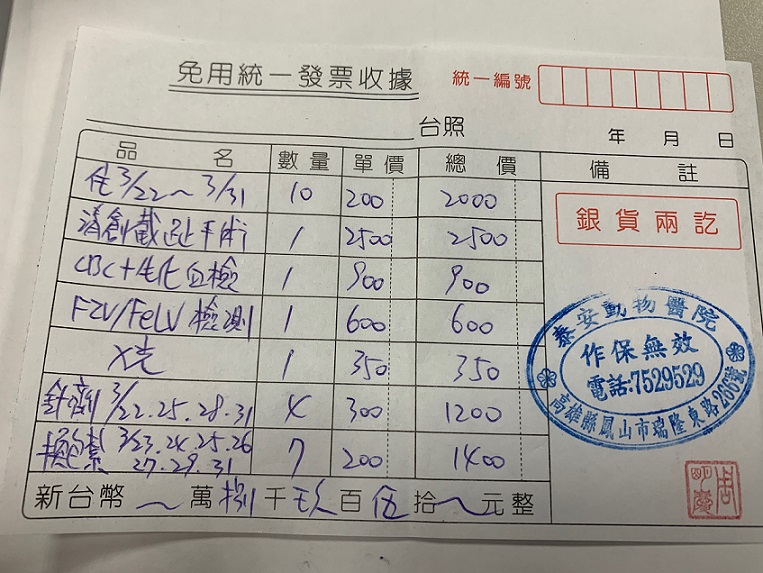 免用統一發票收據
統一編號
台照
年 月 日
品 名 數量 單價 總價 備註
住 3/22~3/31 10 200 2000
清創截趾手術 1 2500 2500
CBC+生化血檢 1 900 900
FIV/FeLV 檢測 1 600 600
X光 1 350 350
針劑 3/22.25.28.31 4 300 1200
換包紮 3/23.24.25.26
27.29.31 7 200 1400
新台幣 ~ 萬 捌 千 玖 百 伍 拾 ~ 元整
銀貨兩訖
泰安動物醫院
作保無效
電話:7529529
高雄縣鳳山市瑞隆東路266號